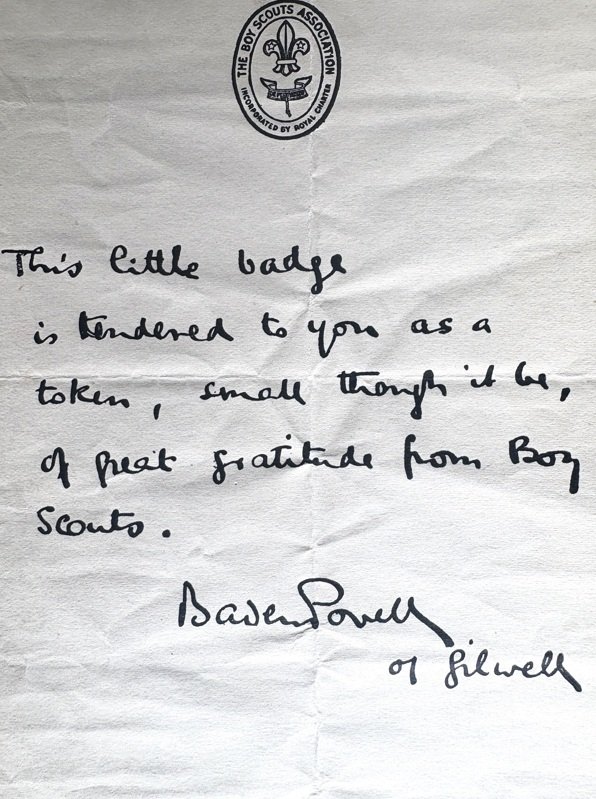 THE BOY SCOUTS ASSOCIATION
INCORPORATED BY ROYAL CHARTER
This little badge
is tendered to you as a
token, small though it be,
of great gratitude from Boy
Scouts.
Baden Powell
of Gilwell